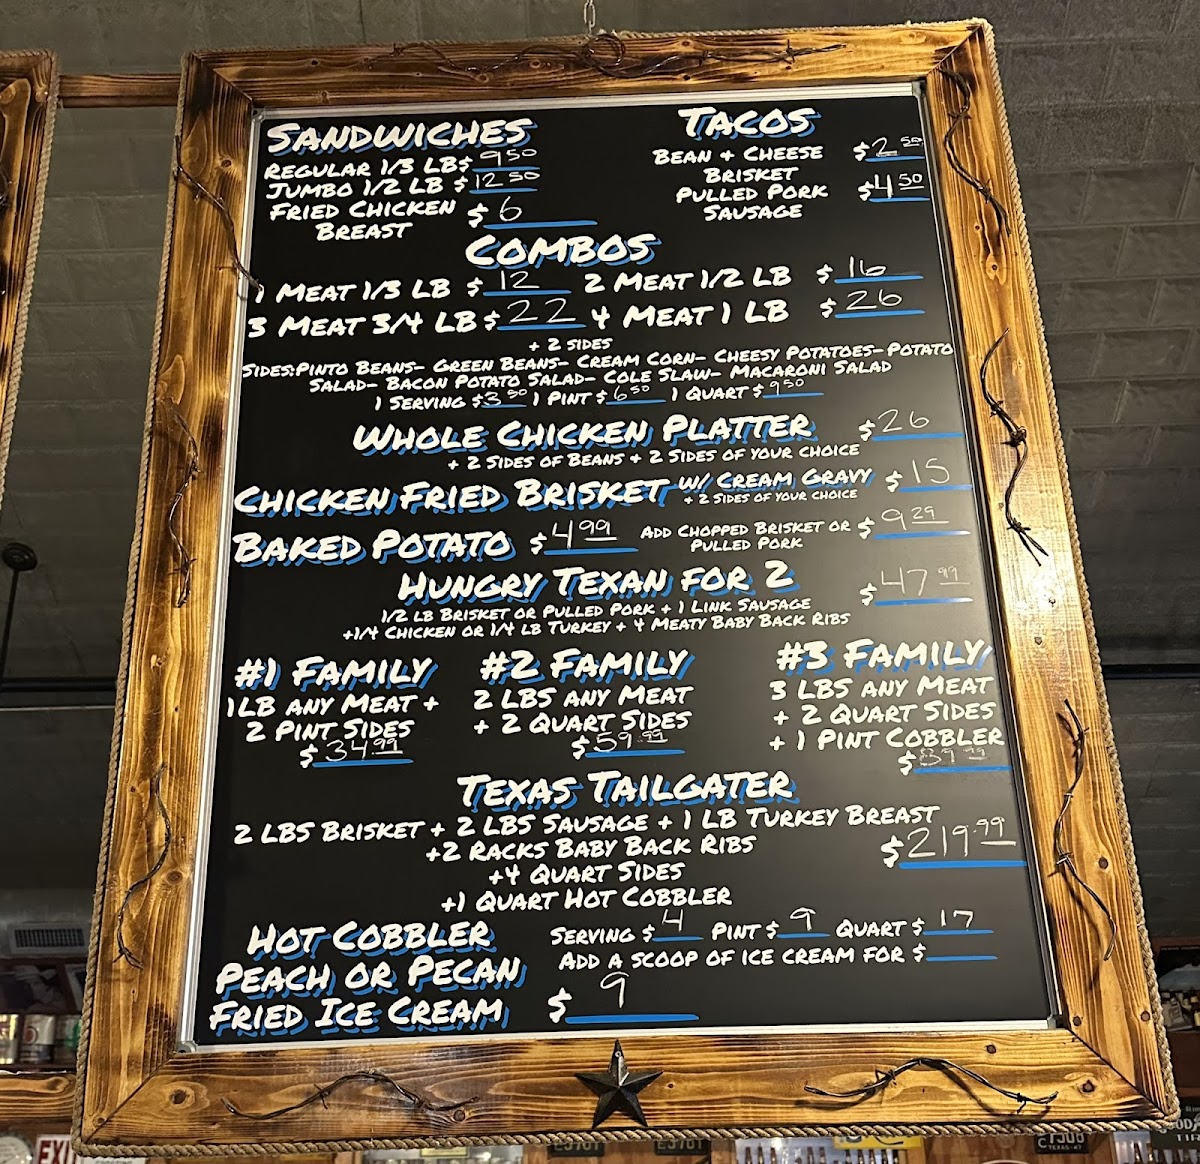 SANDWICHES
REGULAR 1/3 LB $ 9 50
JUMBO 1/2 LB $ 12 50
FRIED CHICKEN BREAST $ 6
TACOS
BEAN + CHEESE $ 2 50
BRISKET
PULLED PORK $ 4 50
SAUSAGE
COMBOS
1 MEAT 1/3 LB $ 12 2 MEAT 1/2 LB $ 16
3 MEAT 3/4 LB $ 22 4 MEAT 1 LB $ 26
+ 2 SIDES
SIDES:PINTO BEANS- GREEN BEANS- CREAM CORN- CHEESY POTATOES- POTATO
SALAD- BACON POTATO SALAD- COLE SLAW- MACARONI SALAD
1 SERVING $ 3 50 1 PINT $ 6 50 1 QUART $ 9 50
WHOLE CHICKEN PLATTER $ 26
+ 2 SIDES OF BEANS + 2 SIDES OF YOUR CHOICE
CHICKEN FRIED BRISKET W/ CREAM GRAVY $ 15
+ 2 SIDES OF YOUR CHOICE
BAKED POTATO $ 4 99 ADD CHOPPED BRISKET OR $ 9 29
PULLED PORK
HUNGRY TEXAN FOR 2 $ 47 99
1/2 LB BRISKET OR PULLED PORK + 1 LINK SAUSAGE
+1/4 CHICKEN OR 1/4 LB TURKEY + 4 MEATY BABY BACK RIBS
#1 FAMILY
1LB ANY MEAT +
2 PINT SIDES
$ 34.99
#2 FAMILY
2 LBS ANY MEAT
+ 2 QUART SIDES
$ 59.99
#3 FAMILY
3 LBS ANY MEAT
+ 2 QUART SIDES
+ 1 PINT COBBLER
$ 89 99
TEXAS TAILGATER
2 LBS BRISKET + 2 LBS SAUSAGE + 1 LB TURKEY BREAST
+2 RACKS BABY BACK RIBS $ 219.99
+4 QUART SIDES
+1 QUART HOT COBBLER
HOT COBBLER SERVING $ 4 PINT $ 9 QUART $ 17
PEACH OR PECAN ADD A SCOOP OF ICE CREAM FOR $
FRIED ICE CREAM $ 9
EXI